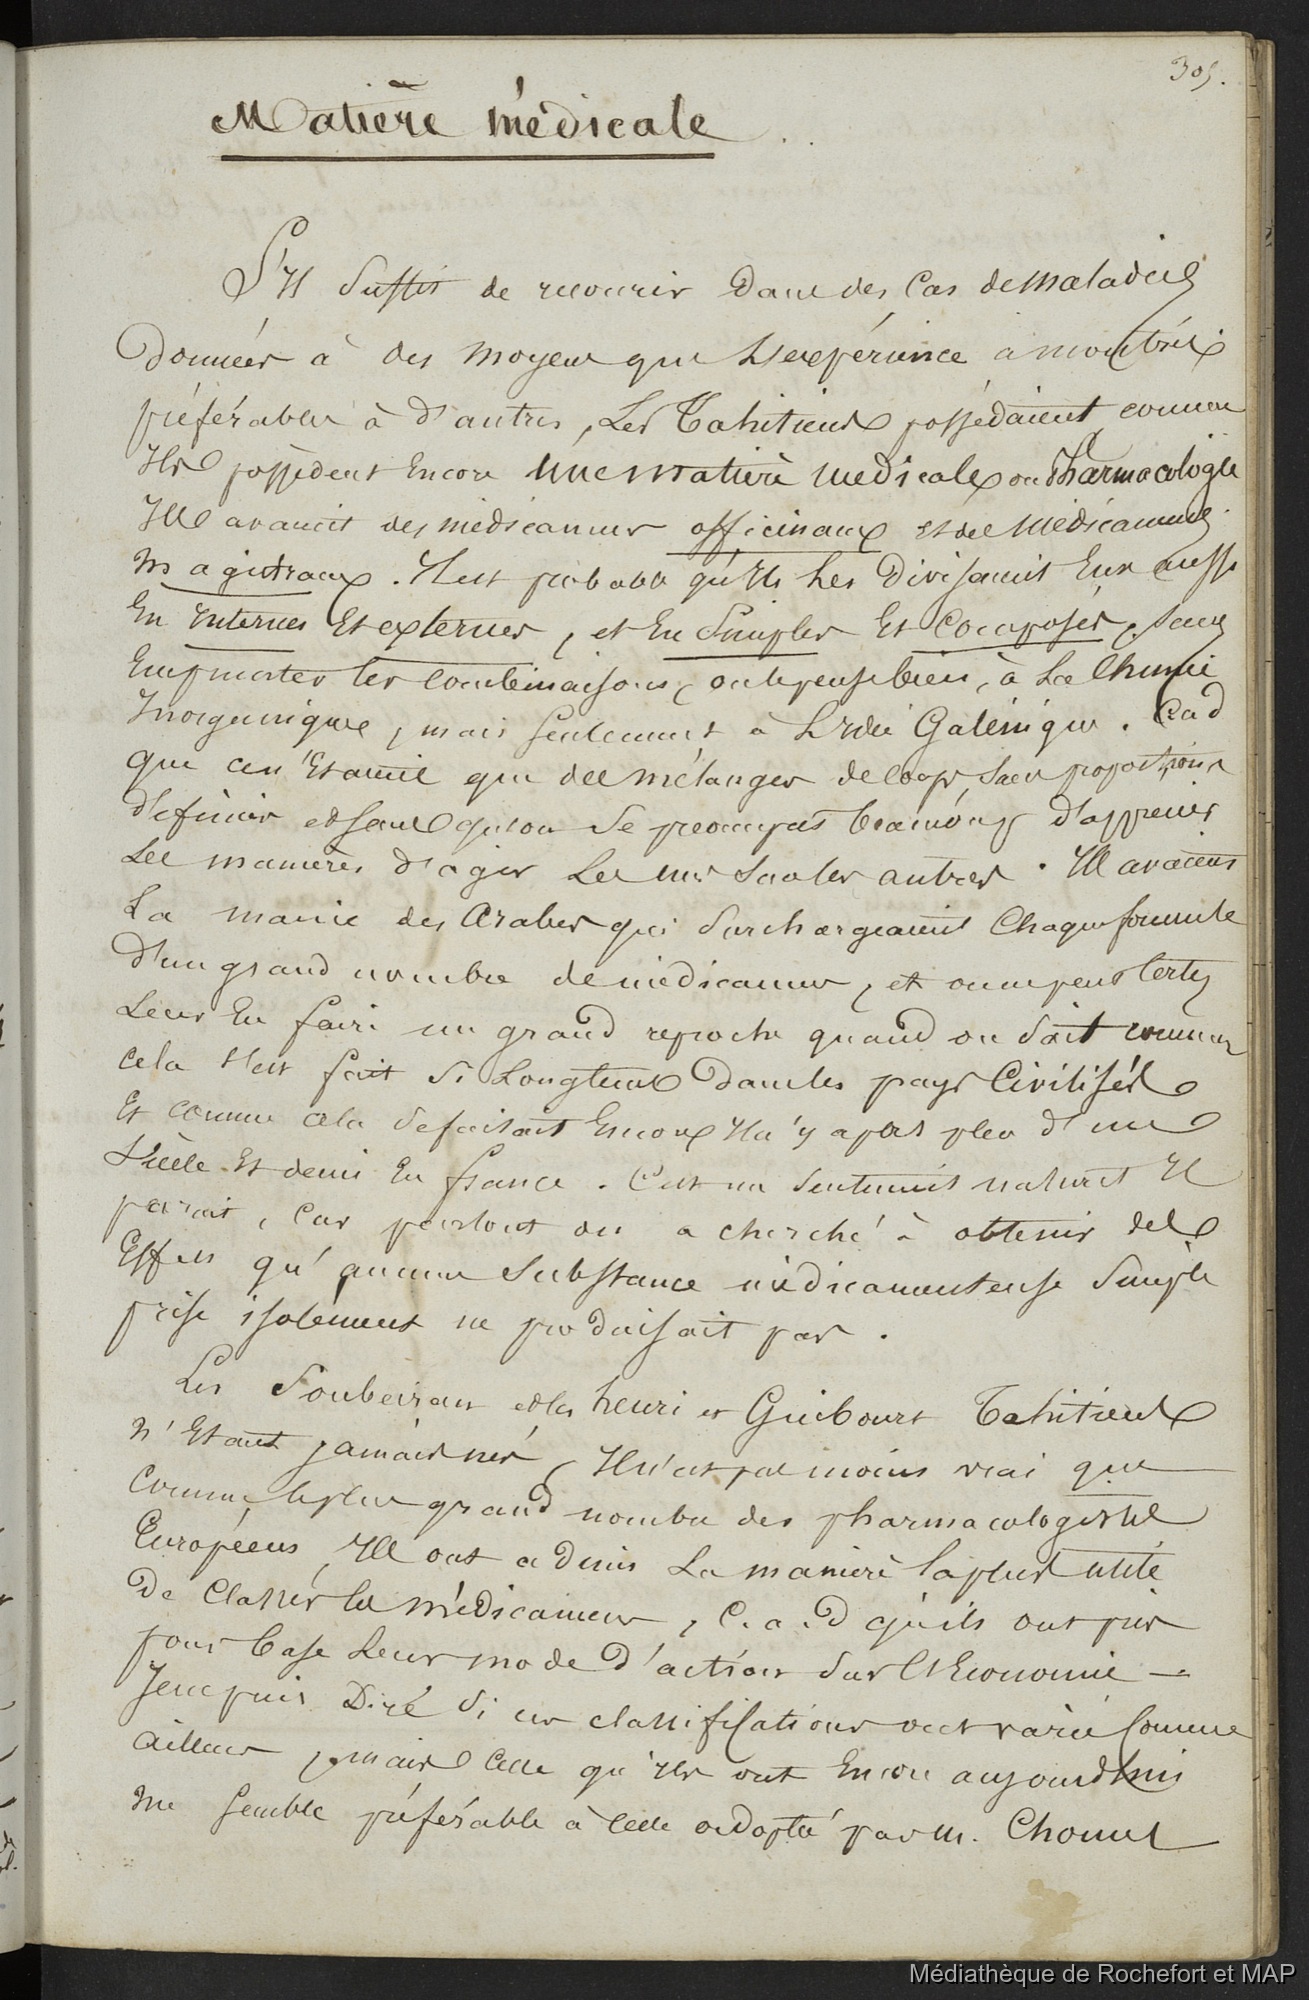 305.
Matière médicale
S'il suffit de recourir dans des cas de maladies
données à des moyens que l'expérience a montrés
préférables à d'autres, Les Tahitiens possédaient, comme
Ils possèdent Encore une matière médicale ou Pharmacologie
Ils avaient des médicamens officinaux et des médicamens
magistraux. Il est probable qu'ils les divisaient Eux aussi
En internes Et externes, et En Simples Et Composés, sans
Emprunter les combinaisons, on le pense bien, à la Chimie
Inorganique, mais seulement à L'idée Galénique. Càd
que ce n'Etaient que des mélanges de corps, sans proportions
définies et sans qu'on se préoccupat beaucoup d'apprécier
Les manières d'agir Les uns sur les autres. Ils avaient
La manie des Arabes qui surchargeaient Chaque formule
d'un grand nombre de médicamens, et on ne peut certes
Leur En faire un grand reproche quand on sait comme
cela s'est fait si Longtems dans les pays Civilisés
Et comme cela se faisait Encore Il n'y a pas plus d'un
Siècle Et demi En france. C'est un sentiment naturel Il
parait, Car partout on a cherché à obtenir des
Effets qu'aucune Substance médicamenteuse Simple
prise isolément ne produisait pas.
Les Soubeiran et les henri et Guibourt Tahitiens
n'Etant jamais nés, Il n'est pas moins vrai que
comme le plus grand nombre des pharmacologistes
Européens, Ils ont admis La manière la plus utile
De Classer les médicamens, C. a. d qu'ils ont pris
pour base Leur mode d'action sur l'Economie —
Je ne puis Dire si ces classifications ont varié comme
ailleurs, mais celle qu'ils ont Encore aujourd'hui
me semble préférable à celle adoptée par M. Chomel
Médiathèque de Rochefort et MAP